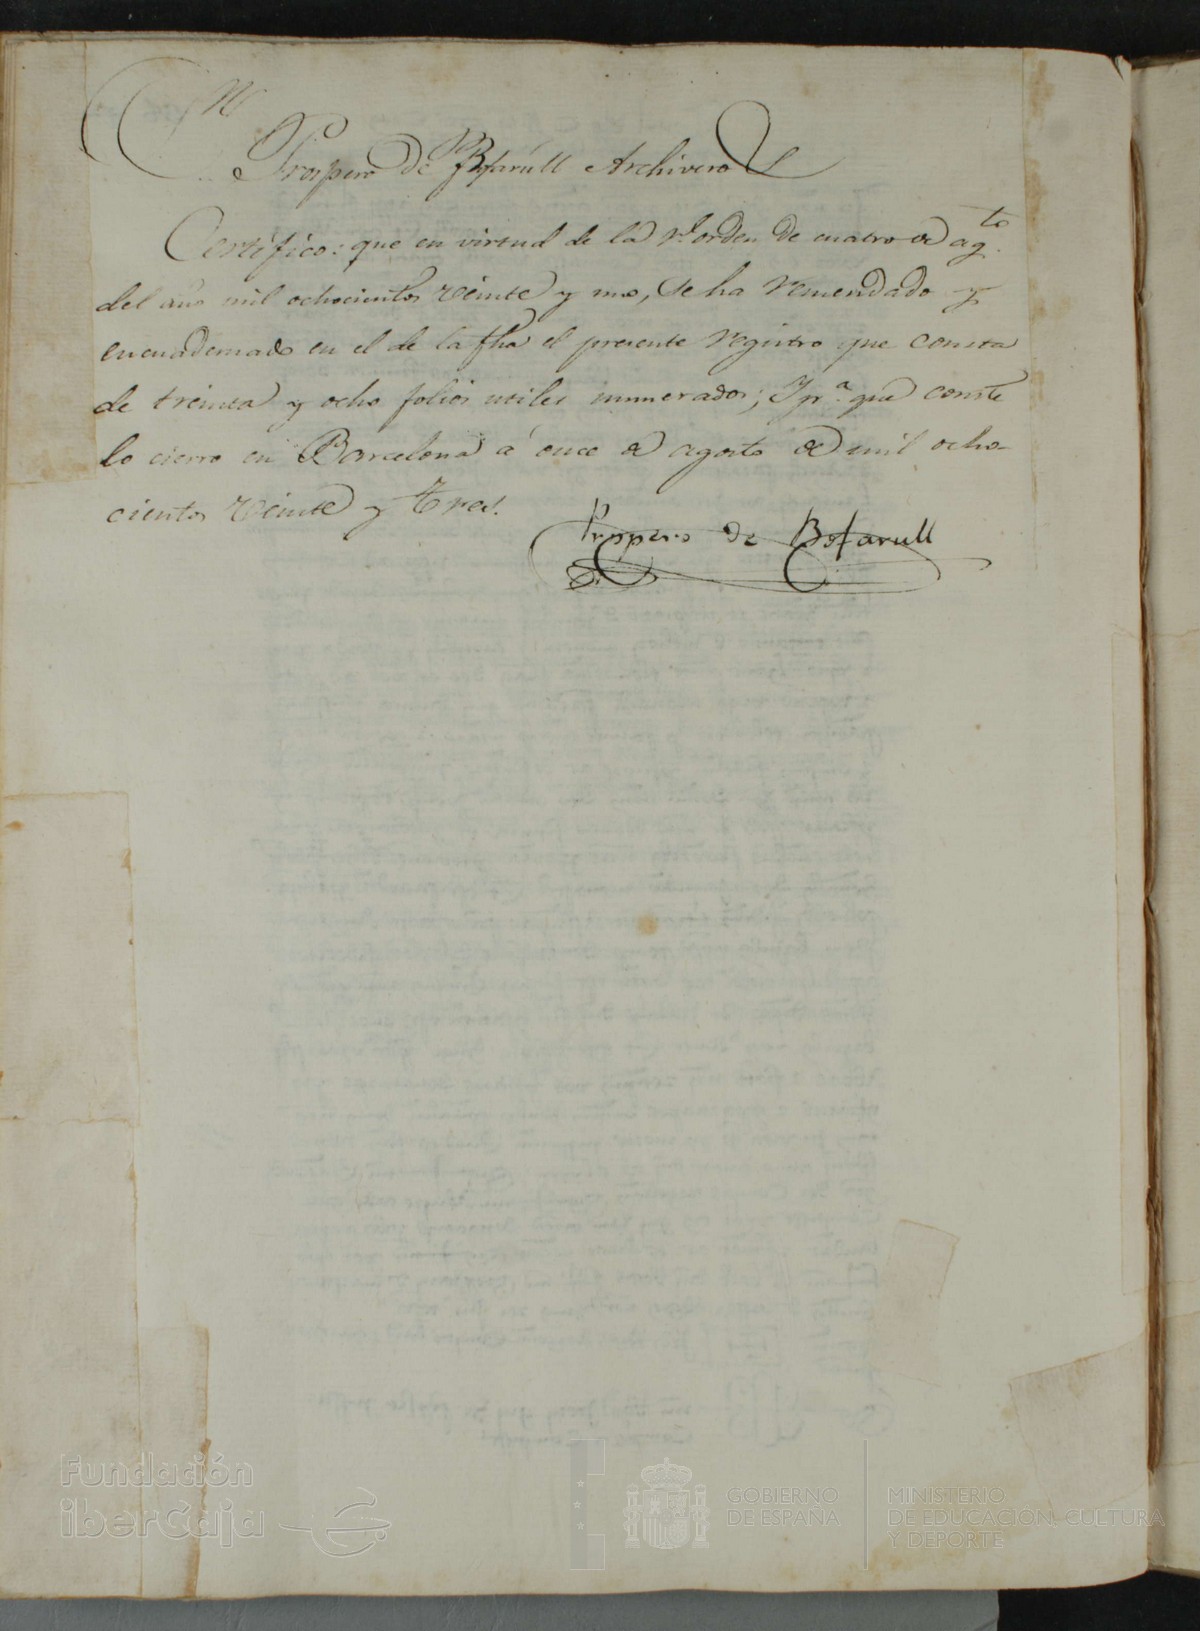 Dn
Prospero de Bofarull Archivero
Certifico: que en virtud de la rl orden de cuatro de agto
del año mil ochocientos veinte y uno, se ha remendado y
encuadernado en el de la fha el presente registro que consta
de treinta y ocho folios utiles numerados; Y pra que conste
lo cierro en Barcelona á once de agosto de mil ocho-
cientos veinte y tres.
Prospero de Bofarull
Fundación
iberCaja
GOBIERNO
DE ESPAÑA
MINISTERIO
DE EDUCACIÓN, CULTURA
Y DEPORTE